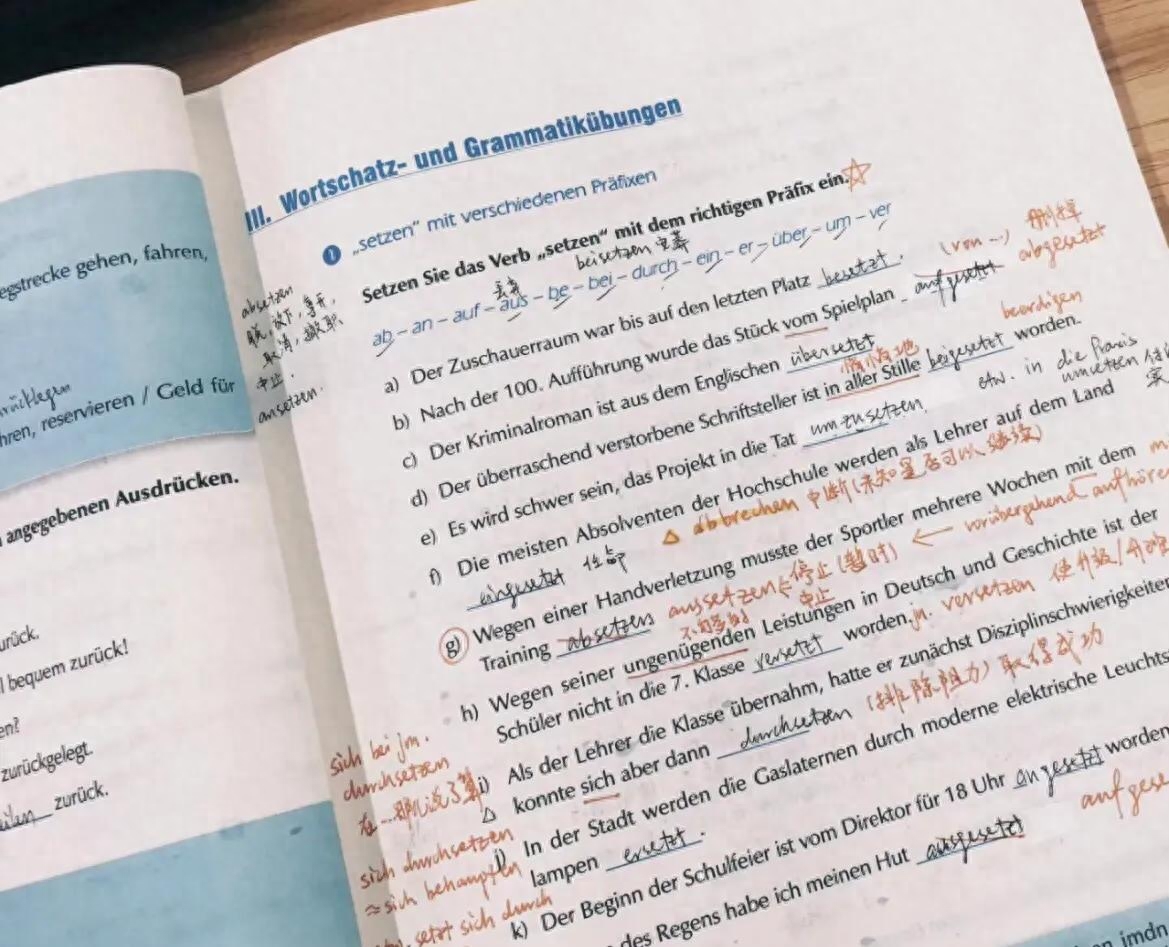 egstrecke gehen, fahren,
hren, reservieren / Geld für
angegebenen Ausdrücken.
urück.
l bequem zurück!
en?
zurückgelegt.
eilen zurück.
III. Wortschatz- und Grammatikübungen
1 „setzen“ mit verschiedenen Präfixen
Setzen Sie das Verb „setzen“ mit dem richtigen Präfix ein.
beisetzen
ab – an – auf – aus – be – bei – durch – ein – er – über – um – ver
absetzen
取消,撤职
中止.
ansetzen.
a) Der Zuschauerraum war bis auf den letzten Platz besetzt.
(von ...) 删掉
b) Nach der 100. Aufführung wurde das Stück vom Spielplan aufgesetzt abgesetzt
c) Der Kriminalroman ist aus dem Englischen übersetzt
beerdigen
d) Der überraschend verstorbene Schriftsteller ist in aller Stille beigesetzt worden.
etw. in die Praxis
umsetzen
e) Es wird schwer sein, das Projekt in die Tat umzusetzen.
f) Die meisten Absolventen der Hochschule werden als Lehrer auf dem Land
eingesetzt 任命
abbrechen 中断(未知是否可以继续)
g) Wegen einer Handverletzung musste der Sportler mehrere Wochen mit dem
Training absetzen aussetzen 停止(暂时) ← vorübergehend aufhören
中止
h) Wegen seiner ungenügenden Leistungen in Deutsch und Geschichte ist der
Schüler nicht in die 7. Klasse versetzt worden. jn. versetzen 使升级/
i) Als der Lehrer die Klasse übernahm, hatte er zunächst Disziplinschwierigkeiten
konnte sich aber dann durchsetzen (排除阻力)取得成功
sich bei jm.
durchsetzen
在...那儿说了算
j) In der Stadt werden die Gaslaternen durch moderne elektrische Leuchts
lampen ersetzt.
sich durchsetzen
≈ sich behaupten
setzt sich durch
k) Der Beginn der Schulfeier ist vom Direktor für 18 Uhr angesetzt worden
des Regens habe ich meinen Hut ausgesetzt aufgese
en imdn